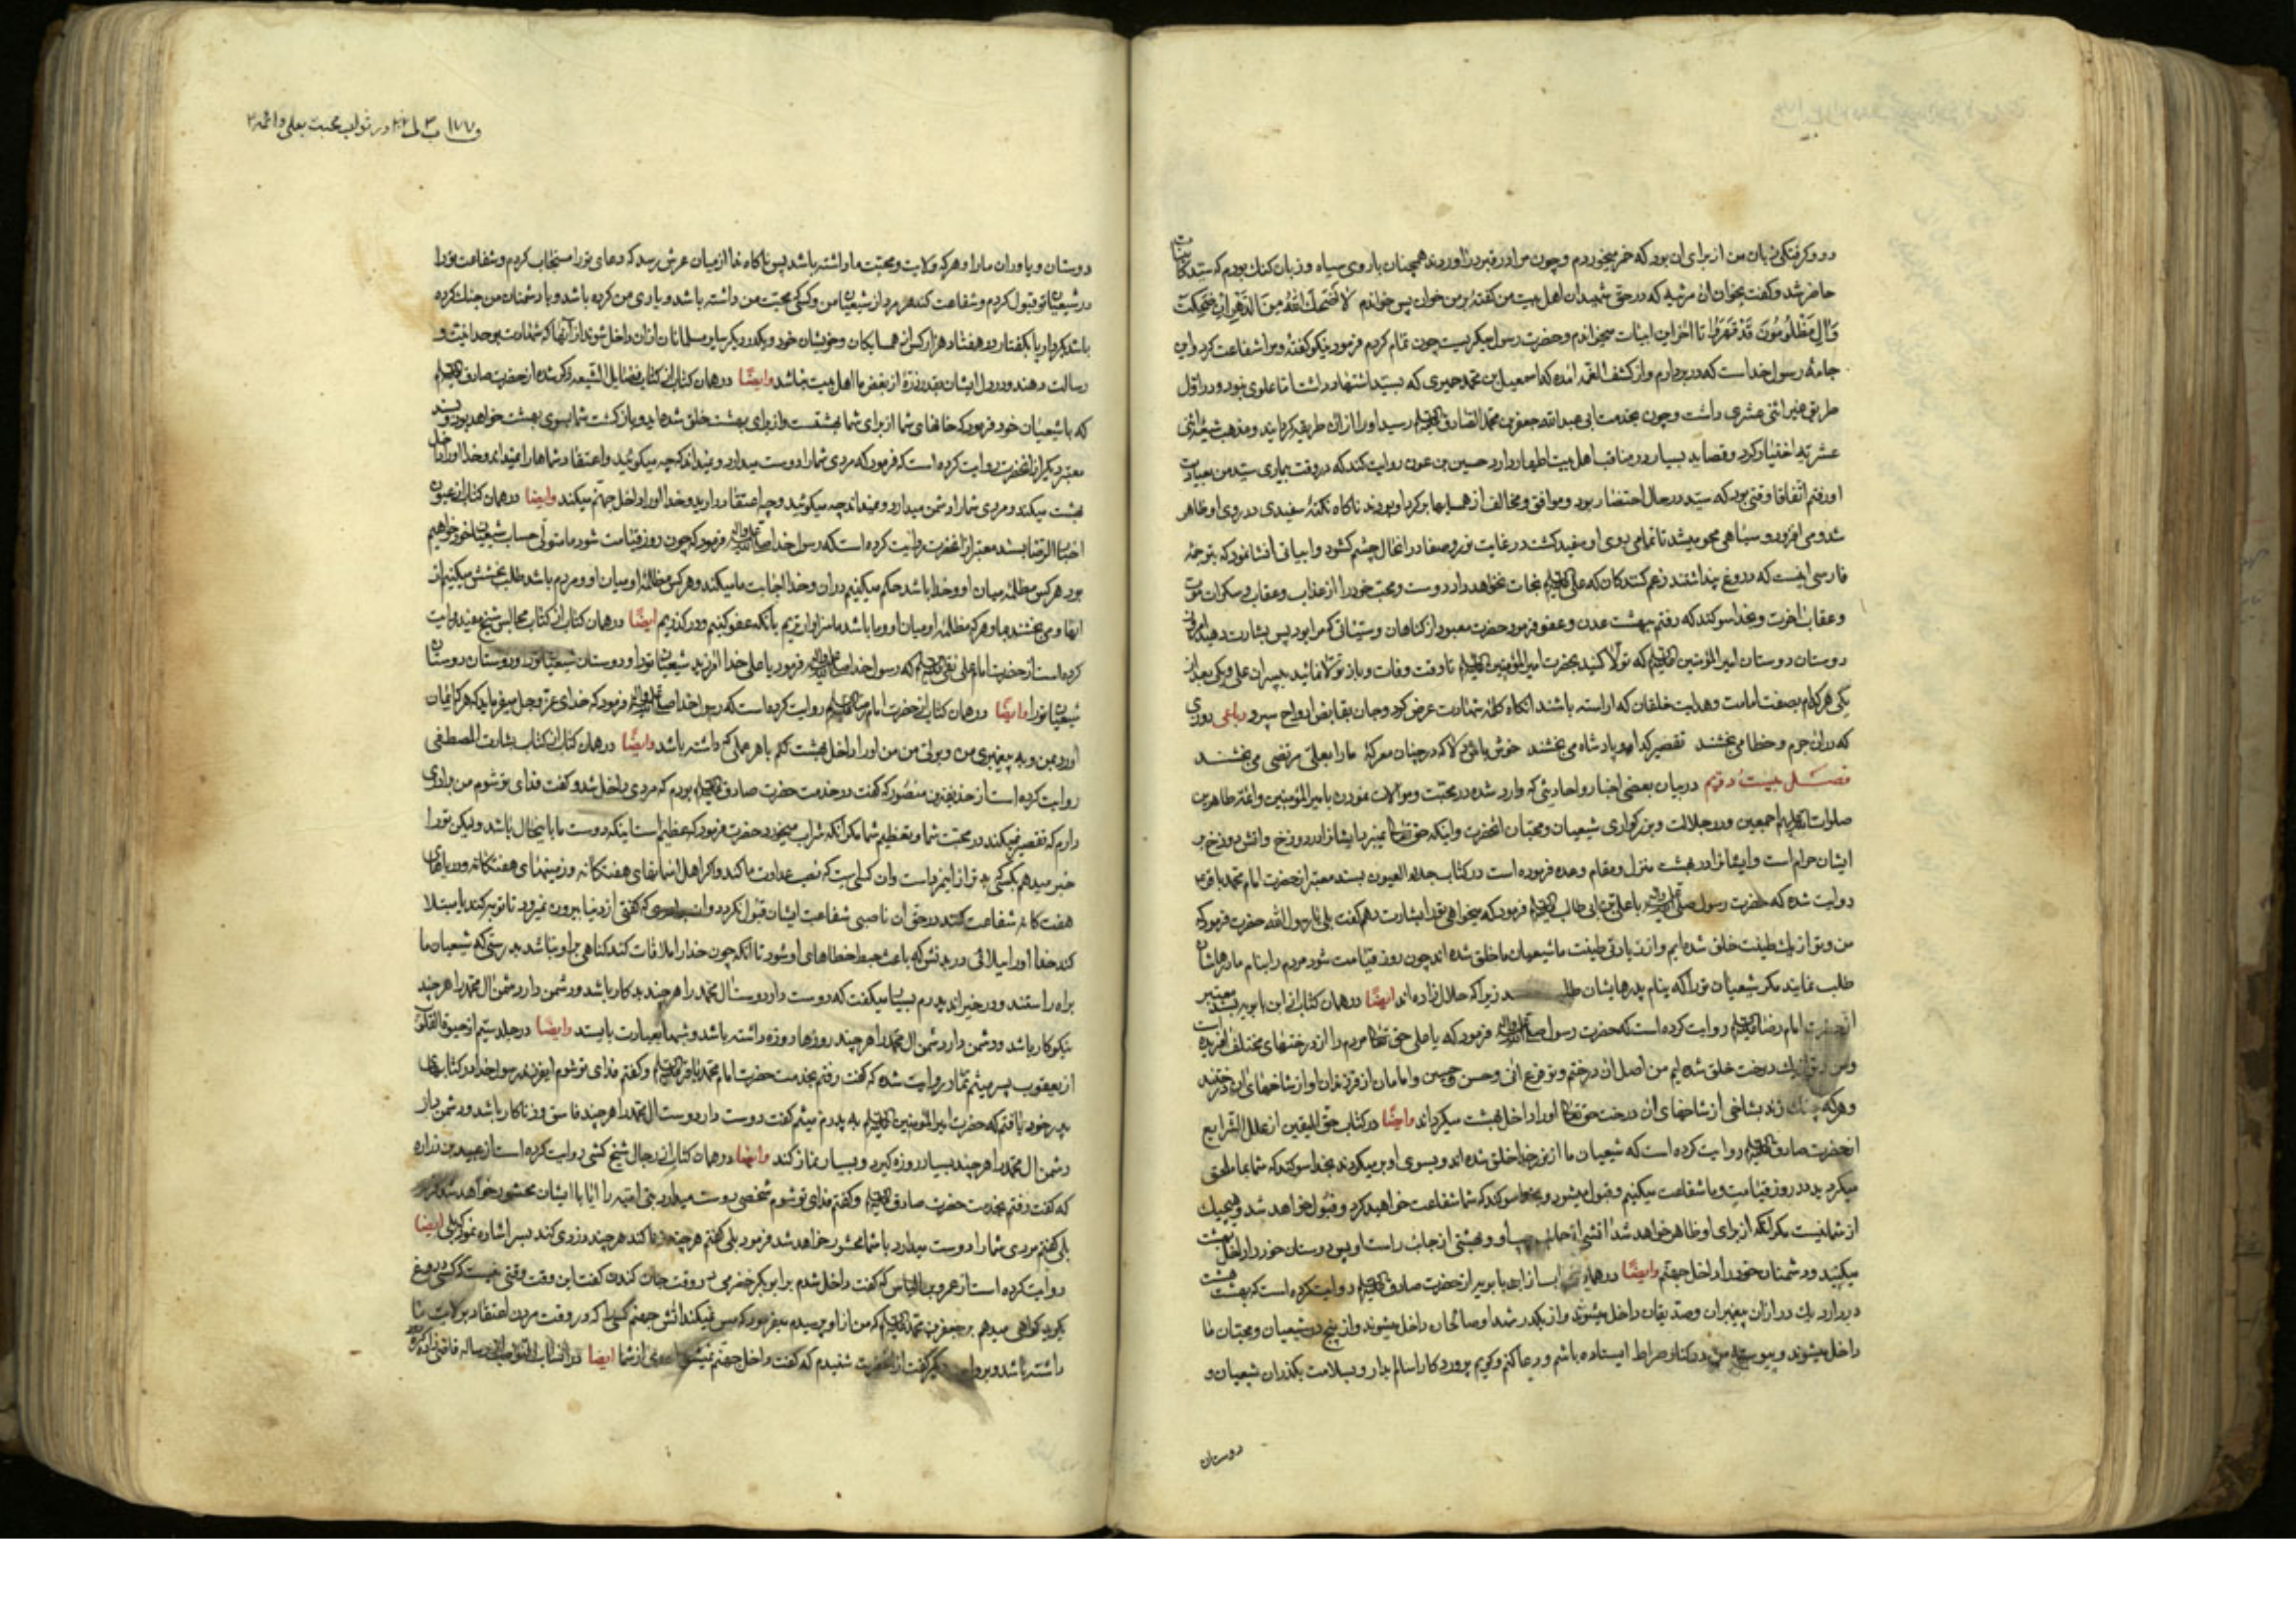 رو و گرفتگی زبان من از برای آن بود که خمر میخوردم و چون مرا در قبر در آوردند همچنان با روی سیاه و زبان گنگ بودم که سید کاینات
حاضر شد و گفت بخوان آن مرثیه که در حق شهیدان اهل بیت من گفتهٔ بر من خوان پس خواندم لا اضحك الله سن الدهر ان ضحکت
وآل مظلومون قد قهروا تا آخر این ابیات میخواندم و حضرت رسول میگریست چون تمام کردم فرمود نیکو گفتهٔ و مرا شفاعت کرد و این
جامهٔ رسول خداست که در بر دارم و از کشف الغمه آمده که اسمعیل بن محمد حمیری که بسید اشتهار داشت اما علوی نبود و در اول
طریق غیر اثنی عشری داشت و چون بخدمت ابی عبدالله جعفر بن محمد الصادق علیه السلام رسید او را از آن طریقه گردانید و مذهب شیعهٔ اثنی
عشریه اختیار کرد و قصاید بسیار در مناقب اهل بیت اطهار دارد حسین بن عون روایت کند که در وقت بیماری سید من بعیادت
او رفتم اتفاقا وقتی بود که سید در حال احتضار بود و موافق و مخالف از همسایها بر گرد او بودند ناگاه نکتهٔ سفیدی در روی او ظاهر
شد و می افزود و سیاهی محو میشد تا تمامی روی او سفید گشت در غایت نور و صفا در آنحال چشم گشود و ابیاتی انشا نمود که ترجمهٔ
فارسی اینست که دروغ پنداشتند زعم کنندگان که علی علیه السلام نجات نخواهد داد دوست و محب خود را از عذاب و عقاب و سکرات موت
و عقاب آخرت و بخدا سوگند که رفتم ببهشت عدن و عفو فرمود حضرت معبود از گناهان و سیئاتی که مرا بود پس بشارت دهید امروز
دوستان دوستان امیر المؤمنین علیه السلام که تولا کنید بحضرت امیر المؤمنین علیه السلام تا وقت وفات و باز تولا نمائید به پسران علی یکی بعد از
یکی هر کدام بصفت امامت و هدایت خلقان که آراسته باشند آنگاه کلمهٔ شهادت عرض کرد و جان بقابض ارواح سپرد رباعی روزی
که در آن جرم و خطا می بخشند تقصیر گدا و پادشاه می بخشند خوش باش که در چنان معرکهٔ ما را بعلی مرتضی می بخشند
فصل بیست و دویم در بیان بعضی اخبار و احادیثی که وارد شده در محبت و موالات نمودن با امیر المؤمنین و ائمهٔ طاهرین
صلوات الله علیهم اجمعین و در جلالت و بزرگواری شیعیان و محبان آنحضرت و اینکه حق تعالی نمیبرد ایشانرا در دوزخ و آتش دوزخ بر
ایشان حرام است و ایشانرا در بهشت منزل و مقام وعده فرموده است در کتاب جلاء العیون بسند معتبر از حضرت امام محمد باقر ع
روایت شده که حضرت رسول صلی الله علیه وآله با علی بن ابی طالب علیه السلام فرمود که میخواهی ترا بشارت دهم گفت بلی یا رسول الله حضرت فرمود که
من و تو از یك طینت خلق شده ایم و از زیادتی طینت ما شیعیان ما خلق شده اند چون روز قیامت شود مردم را بنام مادرهاشان
طلب نمایند مگر شیعیان تو را که بنام پدرهایشان زیرا که حلال زاده اند ایضا در همان کتاب از ابن بابویه بسند معتبر
از حضرت امام رضا علیه السلام روایت کرده است که حضرت رسول صلی الله علیه وآله فرمود که یا علی حق تعالی مردم را از درختهای مختلف آفریده است
و من و تو از یك درخت خلق شده ایم من اصل آن درختم و تو فرع آنی و حسن و حسین و امامان از فرزندان او از شاخهای آن درختند
و هر که چنك زند بشاخی از شاخهای آن درخت حق تعالی او را داخل بهشت میگرداند وایضا در کتاب حق الیقین از علل الشرایع
از حضرت صادق علیه السلام روایت کرده است که شیعیان ما از نور خدا خلق شده اند و بسوی او بر میگردند بخدا سوگند که شما بما ملحق
میگردید در روز قیامت و ما شفاعت میکنیم و قبول میشود و بخدا سوگند که شما شفاعت خواهید کرد و قبول خواهد شد و هیچیك
از شما نیست مگر آنکه از برای او ظاهر خواهد شد آتشی از جانب چپ او و بهشتی از جانب راست او پس دوستان خود را داخل بهشت
میکنید و دشمنان خود را داخل جهنم وایضا در همان کتاب از ابن بابویه از حضرت صادق علیه السلام روایت کرده است که بهشت هشت
در دارد یك در از آن پیغمبران و صدیقان داخل میشوند و از یکدر شهدا و صالحان داخل میشوند و از پنج در شیعیان و محبان ما
داخل میشوند و پیوسته من در کنار صراط ایستاده باشم و دعا کنم و گویم پروردگارا سالم بدار و بسلامت بگذران شیعیان و
دوستان
در ثواب محبت بعلی و ائمه
دوستان و یاوران ما را و هر که ولایت و محبت ما داشته باشد پس ناگاه ندا از میان عرش رسد که دعای تو را مستجاب کردم و شفاعت تو را
در شیعیان تو قبول کردم و شفاعت کند هر مرد از شیعیان من و کسیکه محبت من داشته باشد و یاری من کرده باشد و با دشمنان من جنك کرده
باشد بکردار یا بگفتار در هفتاد هزار کس از همسایگان و خویشان خود و یکدر دیگر سایر مسلمانان از آن داخل شوند از آنها که شهادت بوحدانیت و
رسالت دهند و در دل ایشان بقدر ذرهٔ از بغض ما اهل بیت نباشد وایضا در همان کتاب از کتاب فضایل الشیعه ذکر شده از حضرت صادق علیه السلام
که با شیعیان خود فرمود که خانهای شما از برای شما بهشت است و از برای بهشت خلق شده اید و بازگشت شما بسوی بهشت خواهد بود و بسند
معتبر دیگر از آنحضرت روایت کرده است که فرمود که مردی شما را دوست میدارد و نمیداند که چه میگوئید و اعتقاد شماها را نمیداند و خدا او را داخل
بهشت میکند و مردی شما را دشمن میدارد و نمیداند چه میگوئید و چه اعتقاد دارید و خدا او را داخل جهنم میکند وایضا در همان کتاب از عیون
اخبار الرضا بسند معتبر از آنحضرت روایت کرده است که رسول خدا صلی الله علیه وآله فرمود که چون روز قیامت شود ما متولی حساب شیعیان خود خواهیم
بود هر کس مظلمهٔ میان او و خدا باشد حکم میکنیم در آن و خدا اجابت ما میکند و هر کس مظلمهٔ او میان او و مردم باشد طلب بخشش میکنیم از
آنها و می بخشند بما و هر که مظلمهٔ او میان او و ما باشد ما سزاوارتریم بآنکه عفو کنیم و در گذریم ایضا در همان کتاب از کتاب مجالس شیخ مفید روایت
کرده است از حضرت امام علی نقی علیه السلام که رسول خدا صلی الله علیه وآله فرمود یا علی خدا آمرزید شیعیان تو را و دوستان شیعیان تو را و دوستان دوستان
شیعیان تو را وایضا در همان کتاب از حضرت امام رضا علیه السلام روایت کرده است که رسول خدا صلی الله علیه وآله فرمود که خدای عز و جل میفرماید که هر که ایمان
آورد بمن و به پیغمبری من و بولی من من او را داخل بهشت کنم با هر عملی که داشته باشد وایضا در همان کتاب از کتاب بشارت المصطفی
روایت کرده است از حذیفة بن منصور که گفت در خدمت حضرت صادق علیه السلام بودم که مردی داخل شد و گفت فدای تو شوم من برادری
دارم که تقصیر نمیکند در محبت شما و تعظیم شما مگر آنکه شراب میخورد حضرت فرمود که عظیم است اینکه دوست ما باینحال باشد و لیکن تو را
خبر میدهم بکسیکه بدتر از اینمرد است و آن کسی است که نصب عداوت ما کند و اگر اهل آسمانهای هفتگانه و زمینهای هفتگانه و دریاهای
هفت گانه شفاعت کنند در حق آن ناصبی شفاعت ایشان قبول نگردد و آن که گفتی از دنیا بیرون نمیرود تا توبه کند یا مبتلا
کند خدا او را ببلائی در بدنش که باعث حبط خطاهای او شود تا آنکه چون خدا را ملاقات کند گناهی بر او نباشد بدرستیکه شیعیان ما
براه راستند و در خیر اند پدرم بسیار میگفت که دوست دار دوست آل محمد را هر چند بدکار باشد و دشمن دار دشمن آل محمد را هر چند
نیکوکار باشد و دشمن دار دشمن آل محمد را هر چند روزها روزه داشته باشد و شبها بعبادت بایستد وایضا در جلد سیم از حیوة القلوب
از یعقوب پسر میثم تمار روایت شده که گفت رفتم بخدمت حضرت امام محمد باقر علیه السلام و گفتم فدای تو شوم ای فرزند رسول خدا در کتابهای
پدر خود یافتم که حضرت امیر المؤمنین علیه السلام به پدرم میثم گفت دوست دار دوست آل محمد را هر چند فاسق و زناکار باشد و دشمن دار
دشمن آل محمد را هر چند بسیار روزه گیرد و بسیار نماز کند وایضا در همان کتاب از رجال شیخ کشی روایت کرده است از عبید بن زراره
که گفت رفتم بخدمت حضرت صادق علیه السلام و گفتم فدای تو شوم شخصی دوست میدارد بنی امیه را آیا با ایشان محشور خواهد شد فرمود
بلی گفتم مردی شما را دوست میدارد با شما محشور خواهد شد فرمود بلی گفتم هر چند زنا کند هر چند دزدی کند بسر اشاره نمود که بلی ایضا
روایت کرده است از عمرو بن الیاس که گفت داخل شدم بر ابوبکر حضرمی در وقت جان کندن گفت این وقت وقتی نیست که کسی دروغ
بگوید گواهی میدهم بر جعفر بن محمد علیه السلام که من از او پرسیدم میفرمود که مس نمیکند آتش جهنم کسی را که در وقت مردن اعتقاد بولایت ما
داشته باشد و بروایت دیگر گفت از آنحضرت شنیدم که گفت داخل جهنم نمیشود احدی از شما ایضا در رساله قاضی زاده